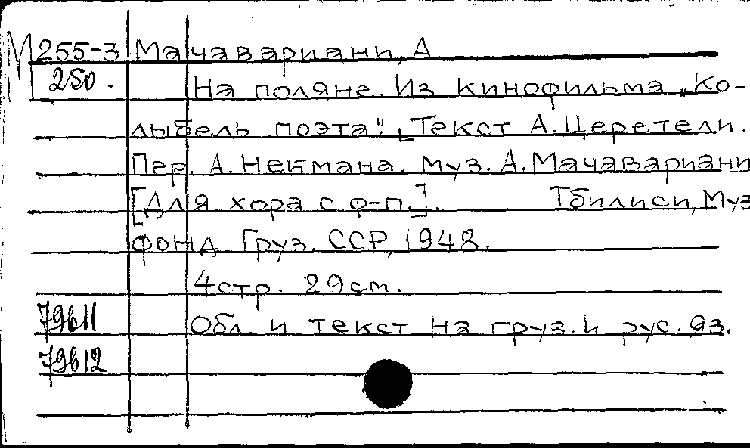 М 255-3 Мачавариани, А
250.
На поляне. Из кинофильма „Ко-
лыбель поэта". [Текст А. Церетели.
Пер. А. Некмана. муз. А. Мачавариани
[Для хора с ф-п.]. Тбилиси, Муз
фонд Груз. ССР, 1948.
4 стр. 29 см.
79611 Обл. и текст на груз. и рус. яз.
79612